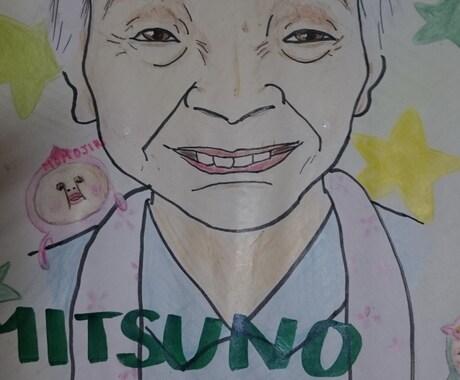 MOMOJIRI
MITSUNO